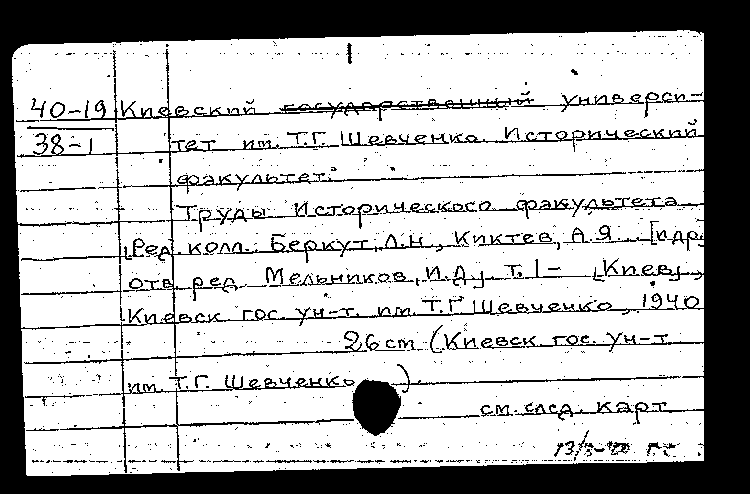 40-19 Киевский государственный универси-
38-1 тет им. Т.Г. Шевченко. Исторический
факультет.
Труды Исторического факультета
[Ред. колл.: Беркут, Л.Н., Киктев, А.Я... [и др.
отв. ред. Мельников, И.Д.] т. 1- [Киев],
Киевск. гос. ун-т. им. Т.Г. Шевченко, 1940
26 cm (Киевск. гос. ун-т
им. Т.Г. Шевченко)
см. след. карт.